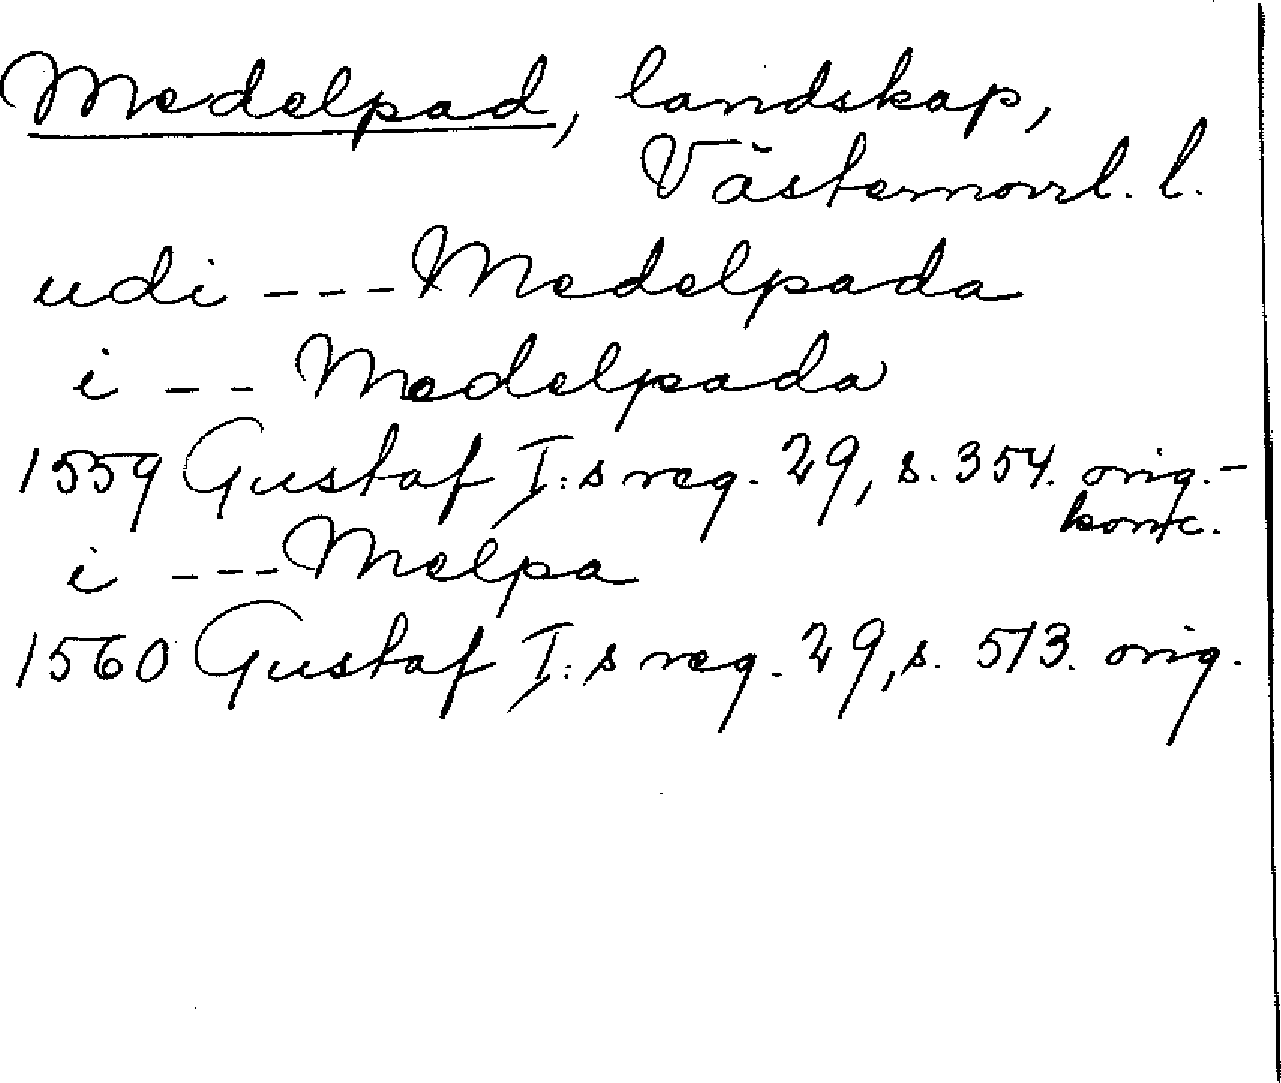 Medelpad, landskap,
Västernorrl. l.
udi --- Medelpada
i -- Medelpada
1559 Gustaf I:s reg. 29, s. 354. orig.-
konc.
i --- Melpa
1560 Gustaf I:s reg. 29, s. 513. orig.